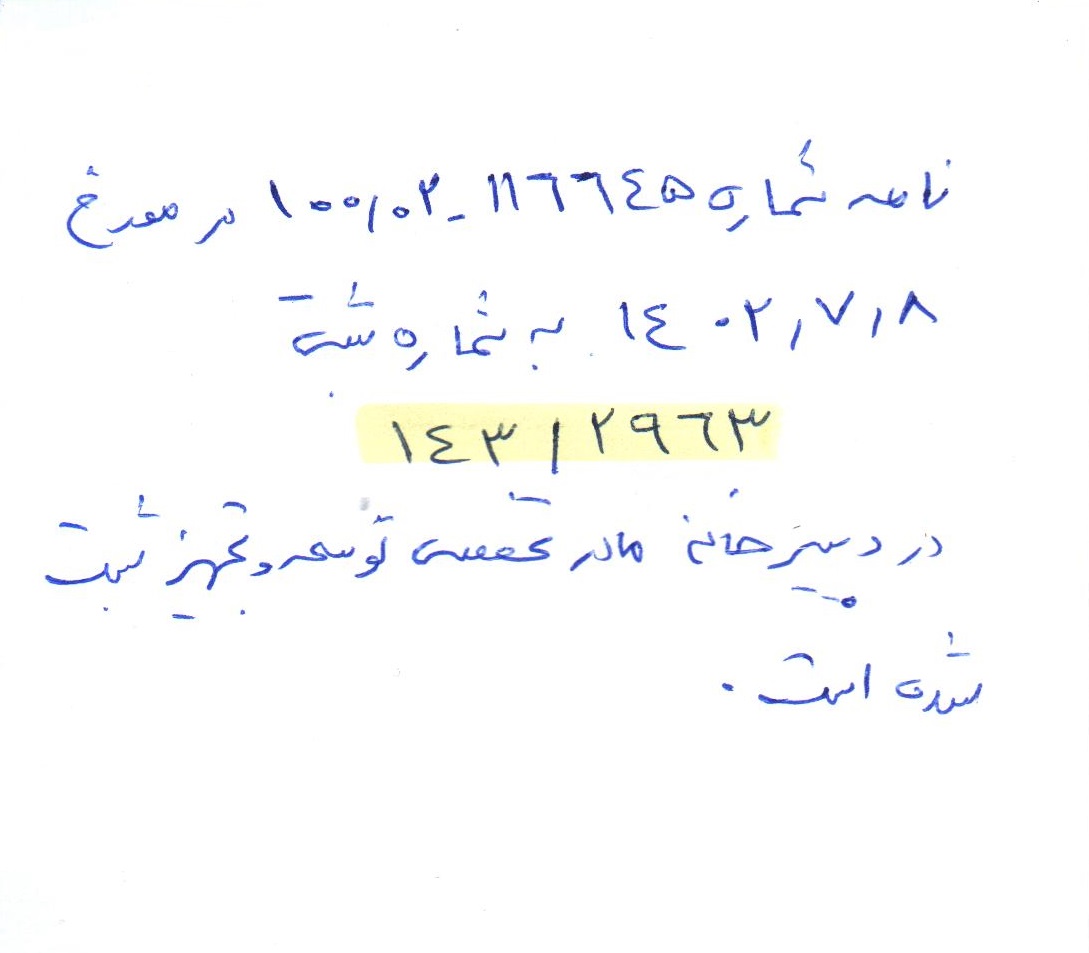 نامه شماره ۱۱۶۶۴۵-۱۰۰/۰۲ در مورخ
۱۴۰۲/۷/۸ به شماره ثبت
۱۴۳/۲۹۶۳
در دبیرخانه مادر تخصصی توسعه و تجهیز ثبت
شده است.